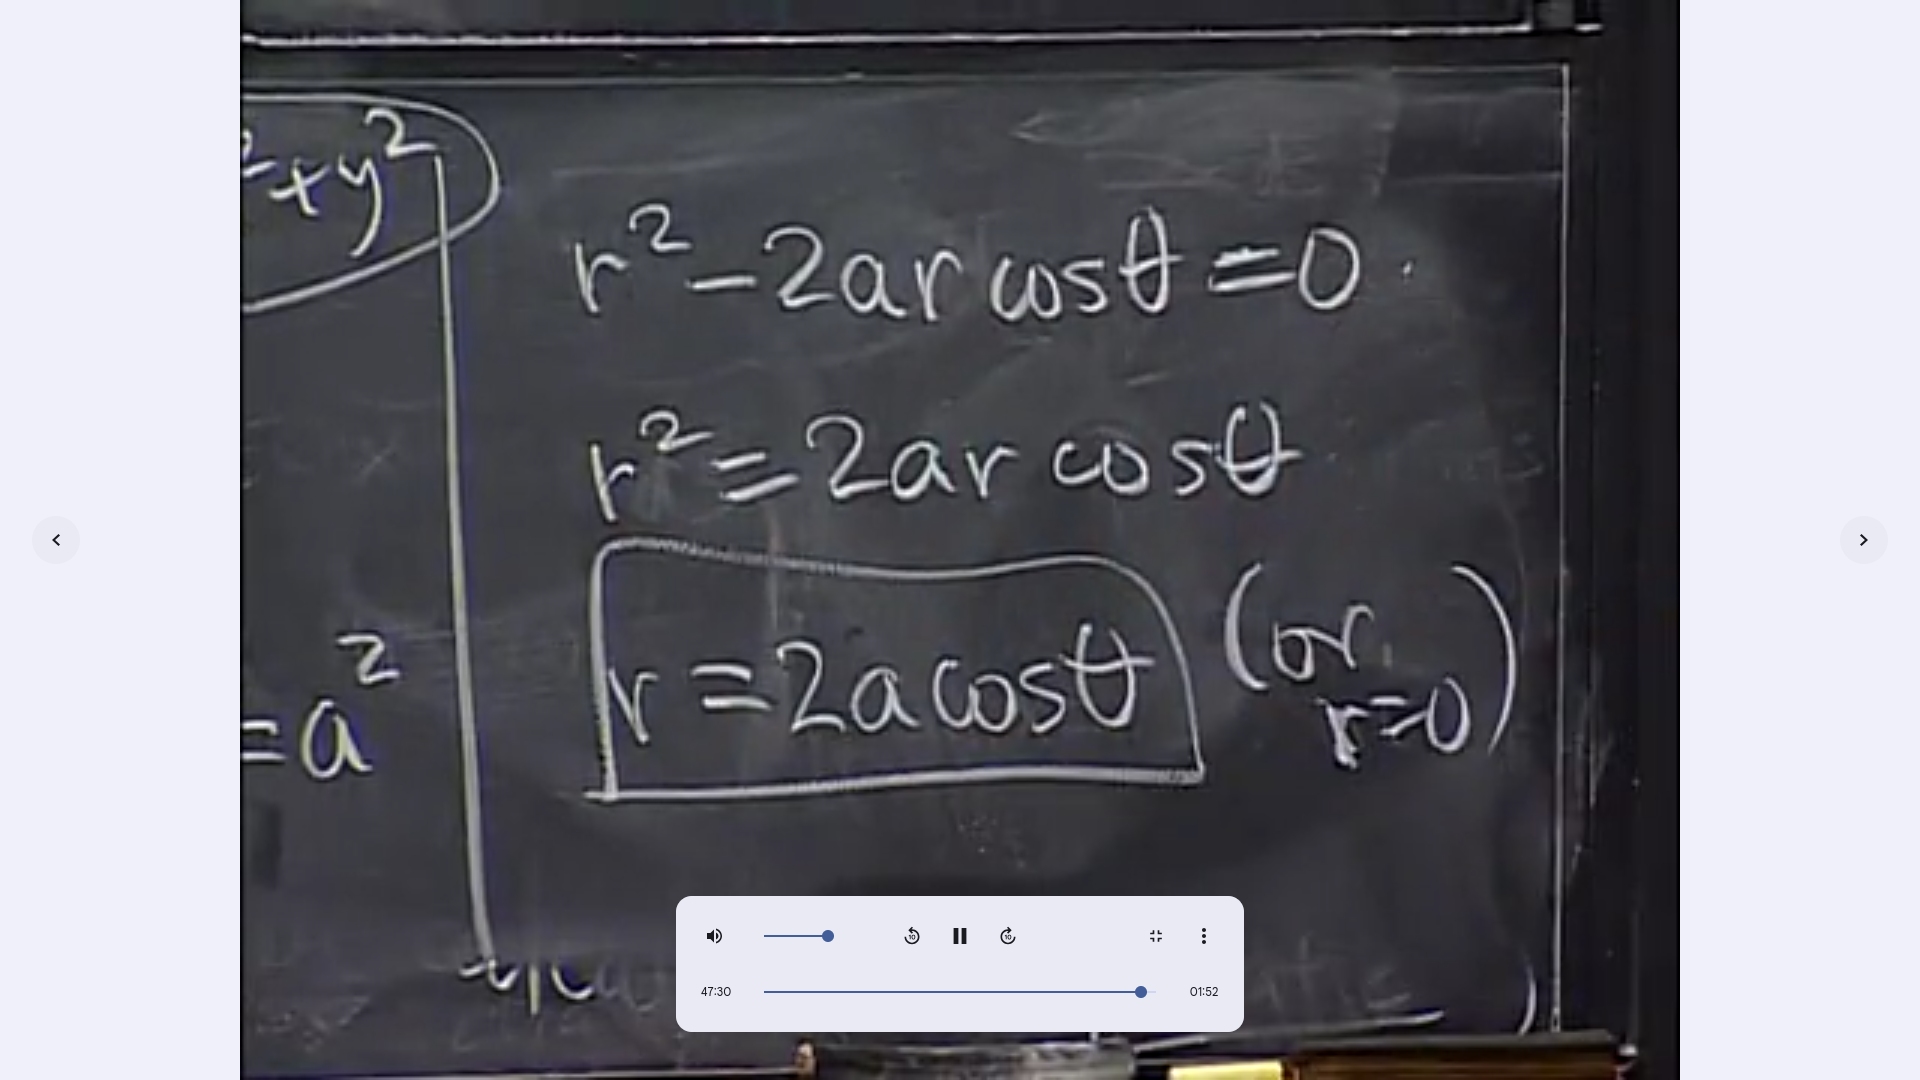 ²+y²
= a²
r² - 2ar cosθ = 0.
r² = 2ar cosθ
r = 2a cosθ (or r=0)
10
10
47:30
01:52